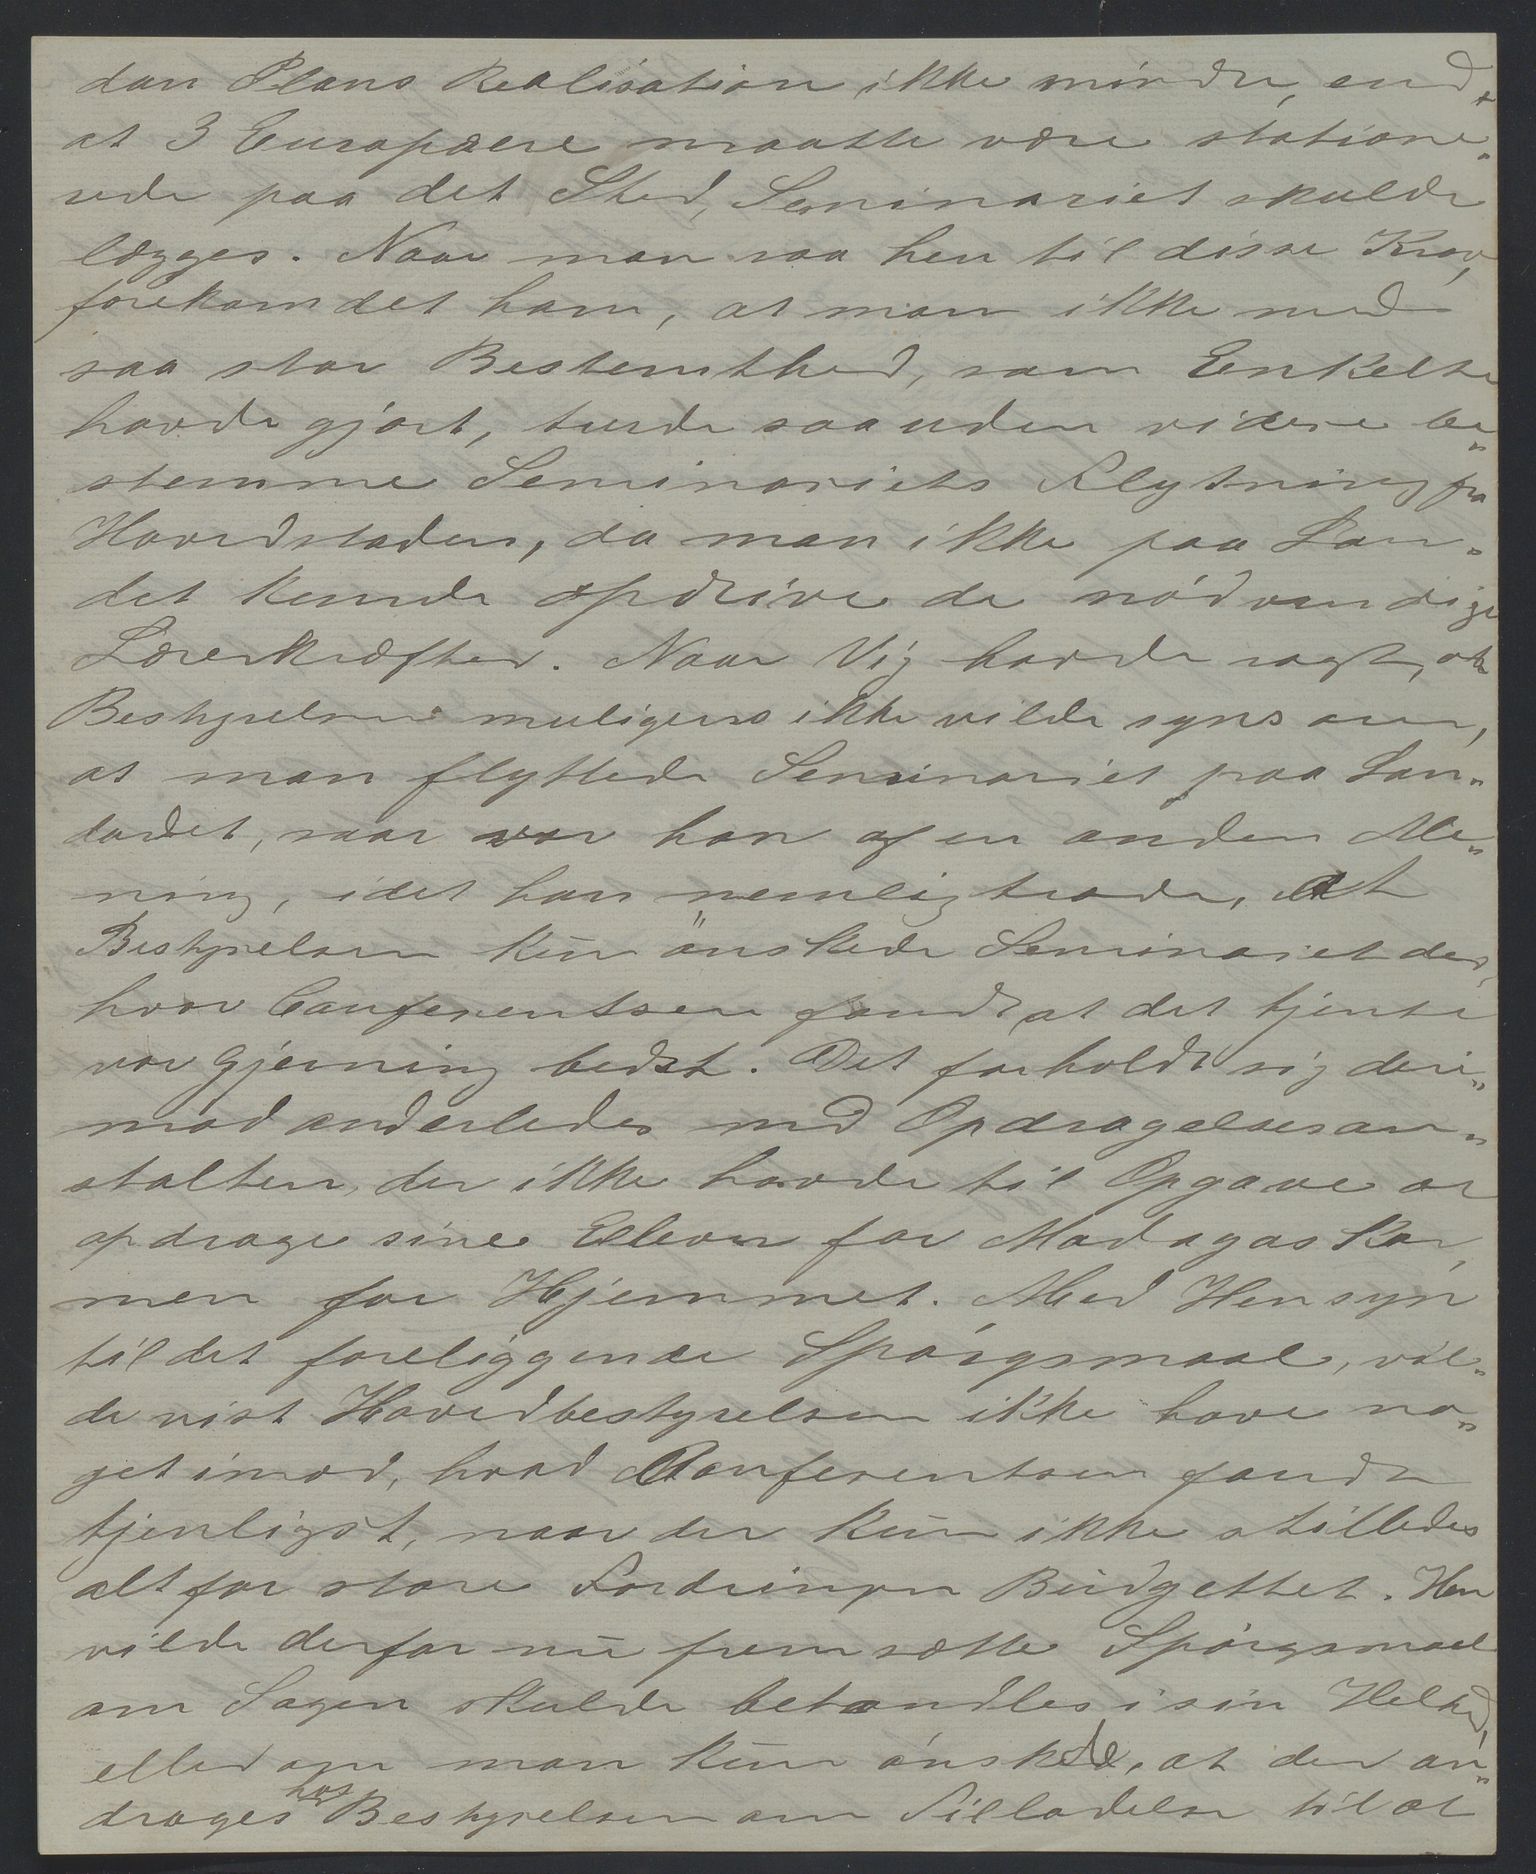 dan Plans Realisation ikke mindre, end
at 3 Europæere maatte være statione„
rede paa det Sted, Seminariet skulde
lægges. Naar man saa hen til disse Krav,
forekom det ham, at man ikke med
saa stor Bestemthed, som Enkelte
havde gjort, turde saa uden videre be„
stemme Seminariets Flytning fra
Hovedstaden, da man ikke paa Lan„
det kunde opdrive de nödvendige
Lærerkræfter. Naar Vig havde sagt, at
Bestyrelsen muligens ikke vilde synes om,
at man flyttede Seminariet paa Lan„
det, saa var han af en anden Me„
ning, idet han nemlig troede, at
Bestyrelsen kun önskede Seminariet der,
hvor Conferentsen fandt, at det tjente
vor Gjerning bedst. Det forholdt sig deri„
mod anderledes med Opdragelsesan„
stalten, der ikke havde til Opgave at
opdrage sine Elever for Madagaskar,
men for Hjemmet. Med Hensyn
til det foreliggende Spörgsmaal, vil„
de vist Hovedbestyrelsen ikke have no„
get imod, hvad Conferentsen fandt
tjenligst, naar der kun ikke stilledes
altfor store Fordringer Budgettet. Han
vilde derfor nu fremsætte Spörgsmaal
om Sagen skulde behandles i sin Helhed,
eller om man kun önskede, at der an„
drages hos Bestyrelsen om Tilladelse til at